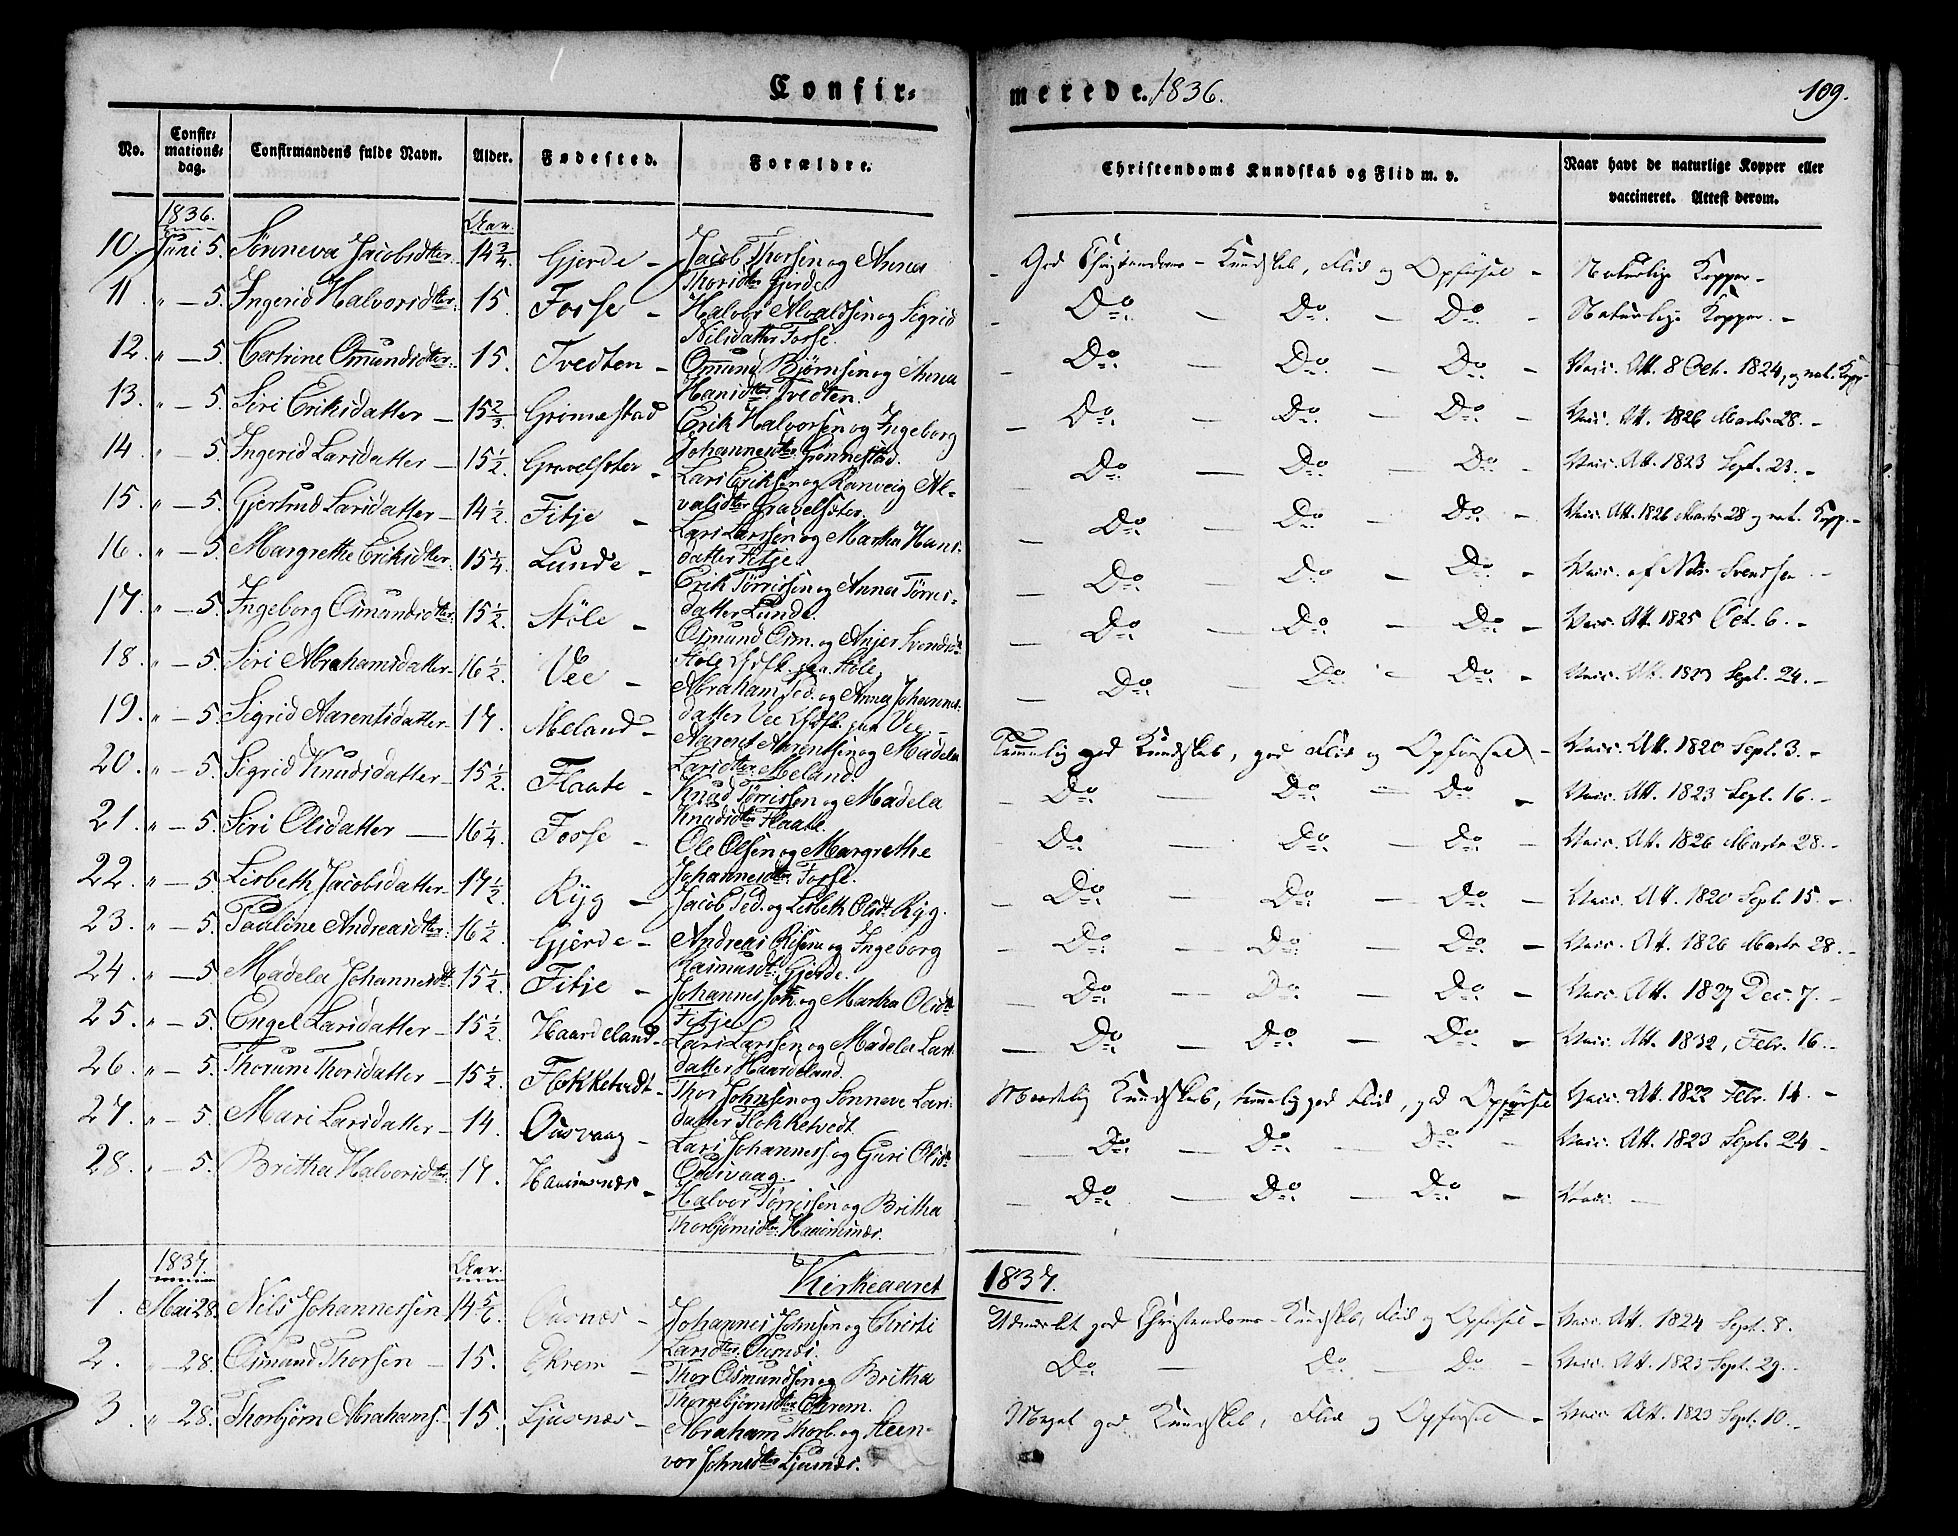 Confir=
merede. 1836.
109.
No.
Confir=
mations=
dag.
Confirmandens fulde Navn.
Alder.
Fødested.
Forældre.
Christendoms Kundskab og Flid m. v.
Naar havt de naturlige Kopper eller
vaccineret. Attest derom.
1836.
Aar.
10. Juni 5. Sønneva Jacobsdtter. 14 3/4 Gjerde - Jacob Thorsen og Anna
Thorsdtter Gjerde
- God Christendoms - Kundskab, Flid og Opførsel - Naturlige Kopper -
11. " - 5. Ingerid Halvorsdtter. 15. Fosse - Halvor Alvaldsen og Sigrid
Nilsdatter Fosse.
- Do. - Do. - Do. - Naturlige Kopper. -
12. " - 5. Cathrine Osmundsdtter. 15. Tvedten - Osmund Bjørnsen og Anna
Hansdtter Tvedten.
- Do. - Do. - Do. - Vacc. Att. 8 Oct. 1824, og nat. Kopp.
13. " - 5. Siri Eriksdatter - 15 2/3. Grimestad Erik Halvorsen og Ingeborg
Johannesdtter Grønnestad.
- Do. - Do. - Do. - Vacc. Att. 1826 Marts 28. -
14. " - 5. Ingerid Larsdatter - 15 1/2. Gravelsæter - Lars Eriksen og Ranveig Al-
valsdtter Gravelsæter.
- Do. - Do. - Do. - Vacc. Att. 1823 Sept. 23. -
15. " - 5. Gjertrud Larsdatter - 14 1/2. Fitje - Lars Larssen og Martha Hans-
datter Fitje.
- Do. - Do. - Do. - Vacc. Att. 1826 Marts 28 og nat. Kopp. -
16. " - 5. Margrethe Eriksdtter. 15 1/4. Lunde - Erik Tørrissen og Anna Tørres-
datter Lunde.
- Do. - Do. - Do. - Vacc. af Nils Svendsen -
17. " - 5. Ingeborg Osmundsdtter. 15 1/2. Støle - Osmund Osm. og Anjer Svendsdt
Støle
- Do. - Do. - Do. - Vacc. Att. 1825 Oct. 6. -
18. " - 5. Siri Abrahamsdatter - 16 1/2. Vee - Abraham Ped. og Anna Johannes-
datter Vee
- Do. - Do. - Do. - Vacc. Att. 1823 Sept. 24. -
19. " - 5. Sigrid Aarentsdatter - 17. Meland - Aarent Aarentsen og Madela
Larsdtter Meland.
Temmelig god Kundskab, god Flid og Opførsel - Vacc. Att. 1820 Sept. 3. -
20. " - 5. Sigrid Knudsdatter - 15 1/2. Flaate - Knud Tørrissen og Madela
Knudsdtter Flaate.
- Do. - Do. - Do. - Vacc. Att. 1823 Sept. 16. -
21. " - 5. Siri Olsdatter - 16 1/4. Fosse - Ole Olsen og Margrethe
Johannesdtter Fosse.
- Do. - Do. - Do. - Vacc. Att. 1826 Marts 28. -
22. " - 5. Lisbeth Jacobsdatter - 17 1/2. Ryg - Jacob Ped. og Lisbeth Olsdt. Ryg.
- Do. - Do. - Do. - Vacc. Att. 1820 Sept. 15. -
23. " - 5. Pauline Andreasdtter. 16 1/2. Gjerde - Andreas Olsen og Ingeborg
Rasmusdt. Gjerde.
- Do. - Do. - Do. - Vacc. Att. 1826 Marts 28. -
24. " - 5. Madela Johannesdt. 15 1/2. Fitje - Johannes Joh. og Martha Olsdt
Fitje
- Do. - Do. - Do. - Vacc. Att. 1827 Dec. 7. -
25. " - 5. Engel Larsdatter - 15 1/2. Haardeland - Lars Larssen og Madela Lars-
datter Haardeland.
- Do. - Do. - Do. - Vacc. Att. 1832, Febr. 16. -
26. " - 5. Thorum Thorsdatter - 15 1/2. Flokketvedt - Thor Johnsen og Sønneve Lars-
datter Flokketvedt.
Maadelig Kundskab, temmelig god Flid, god Opførsel Vacc. Att. 1822 Febr. 14. -
27. " - 5. Mari Larsdatter - 14. Ousvaag - Lars Johanness. og Guri Olsdt
Ousvaag.
- Do. - Do. - Do. - Vacc. Att. 1823 Sept. 24 -
28. " - 5. Britha Halvorsdtter. 17. Haaimsnæs - Halvor Tørrissen og Britha
Thorbjørnsdtter Haaimsnæs.
- Do. - Do. - Do. -
1837.
Aar.
Kirkeaaret
1837.
1. Mai 28. Nils Johannessen 14 5/6. Ousnæs - Johannes Johnsen og Christi
Larsdtter Ousnæs.
Udmærket god Christendoms - Kundskab, Flid og Opførsel - Vacc. Att. 1824 Sept. 8.
2. " - 28. Osmund Thorsen - 15. Ekrem - Thor Osmundsen og Britha
Thorbjørnsdtter Ekrem.
Do. - Do. - Do. - Vacc. Att. 1823 Sept. 29. -
3. " - 28. Thorbjørn Abrahams. 15. Ljusnæs - Abraham Thorb. og Steen-
vor Johnsdtter Ljusnæs.
Meget god Kundskab, Flid og Opførsel - Vacc. Att. 1823 Sept. 10. -